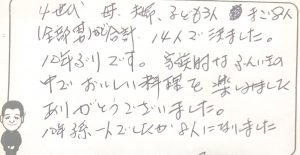 4世代 母、夫婦、子ども3人 まご8人
(全部男)が合計、14人で済ました。
10年ぶりです。家族的なふんい気の
中でおいしい料理を楽しみました
ありがとうございました。
10年孫一人でしたが8人になりました